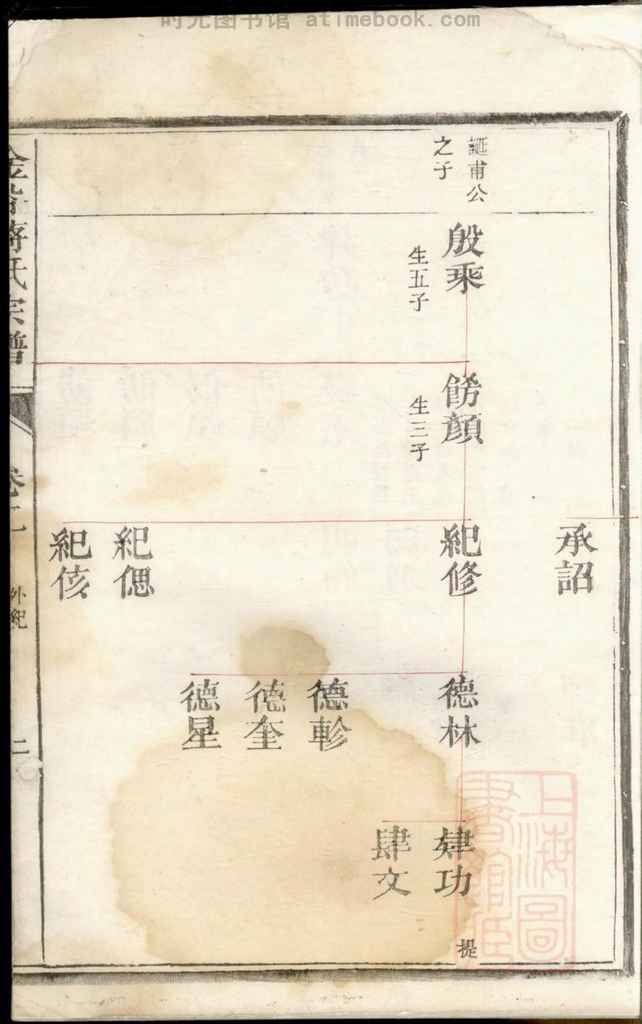 时光图书馆 atimebook.com
誕甫公
之子
殷乘
生五子
餝顏
生三子
承詔
紀修
紀偲
紀侅
德林
德軫
德奎
德星
肄功
肆文
提
蔣氏宗譜
卷二
外紀
二
上海圖
書館臧